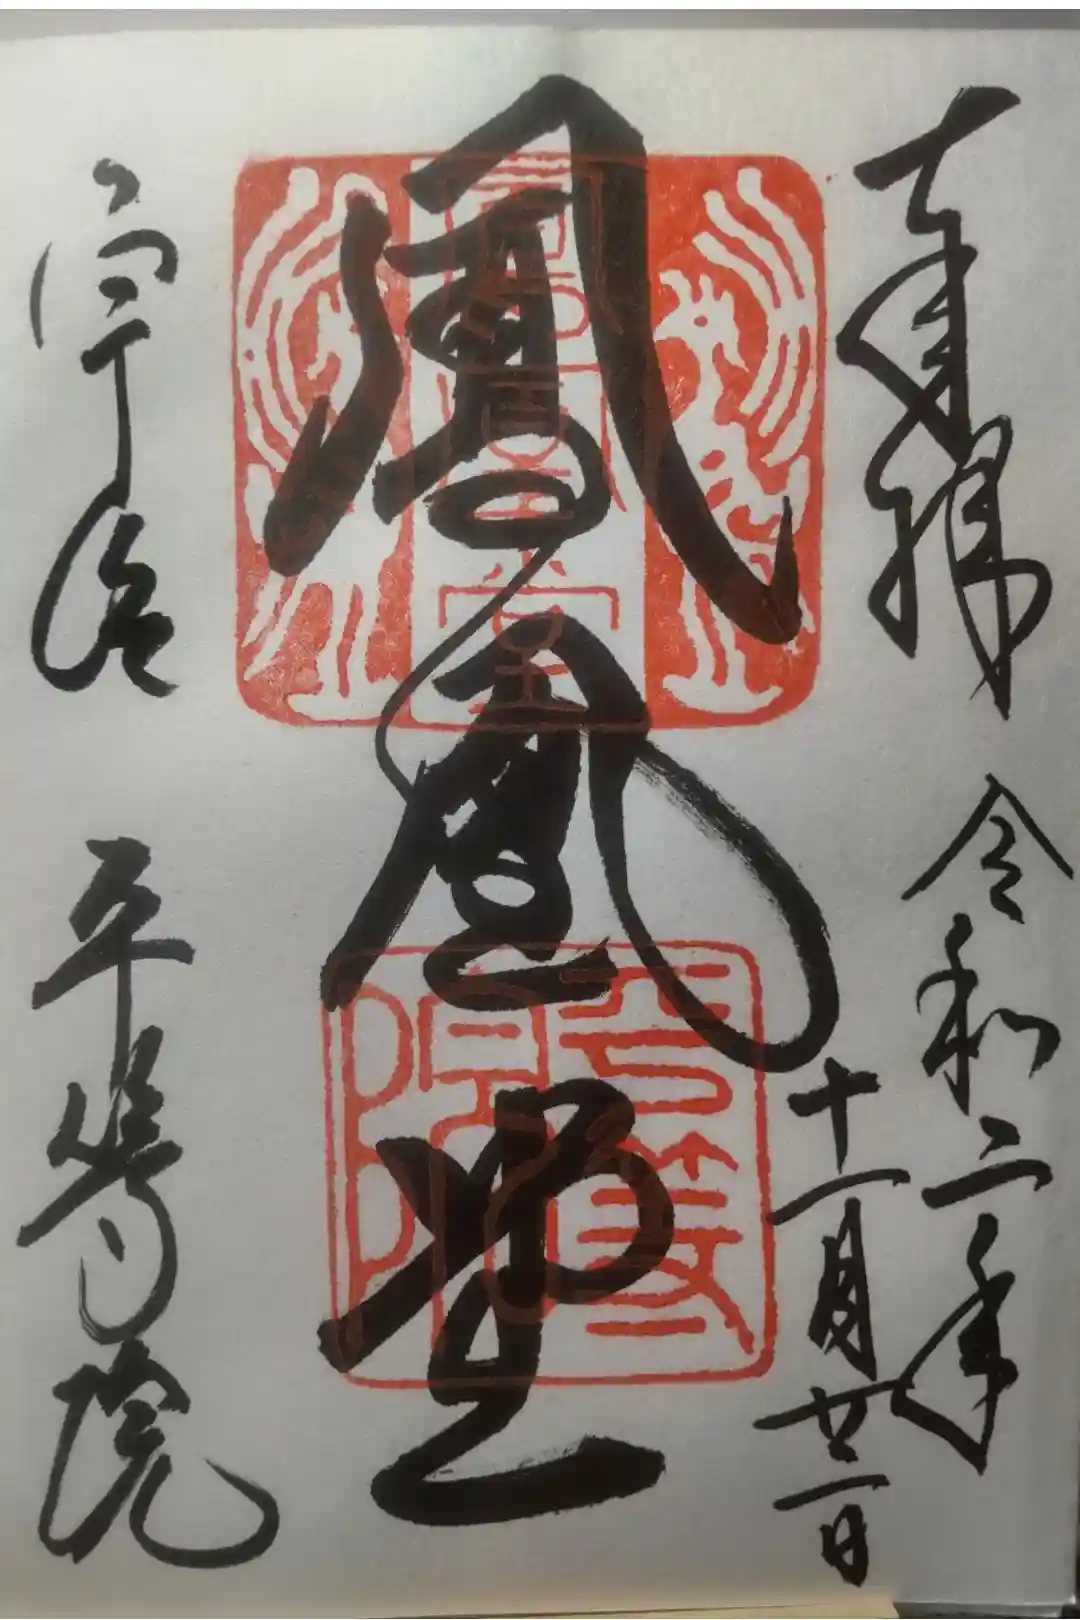 奉拝
令和二年
十一月廿一日
鳳凰堂
宇治
平等院